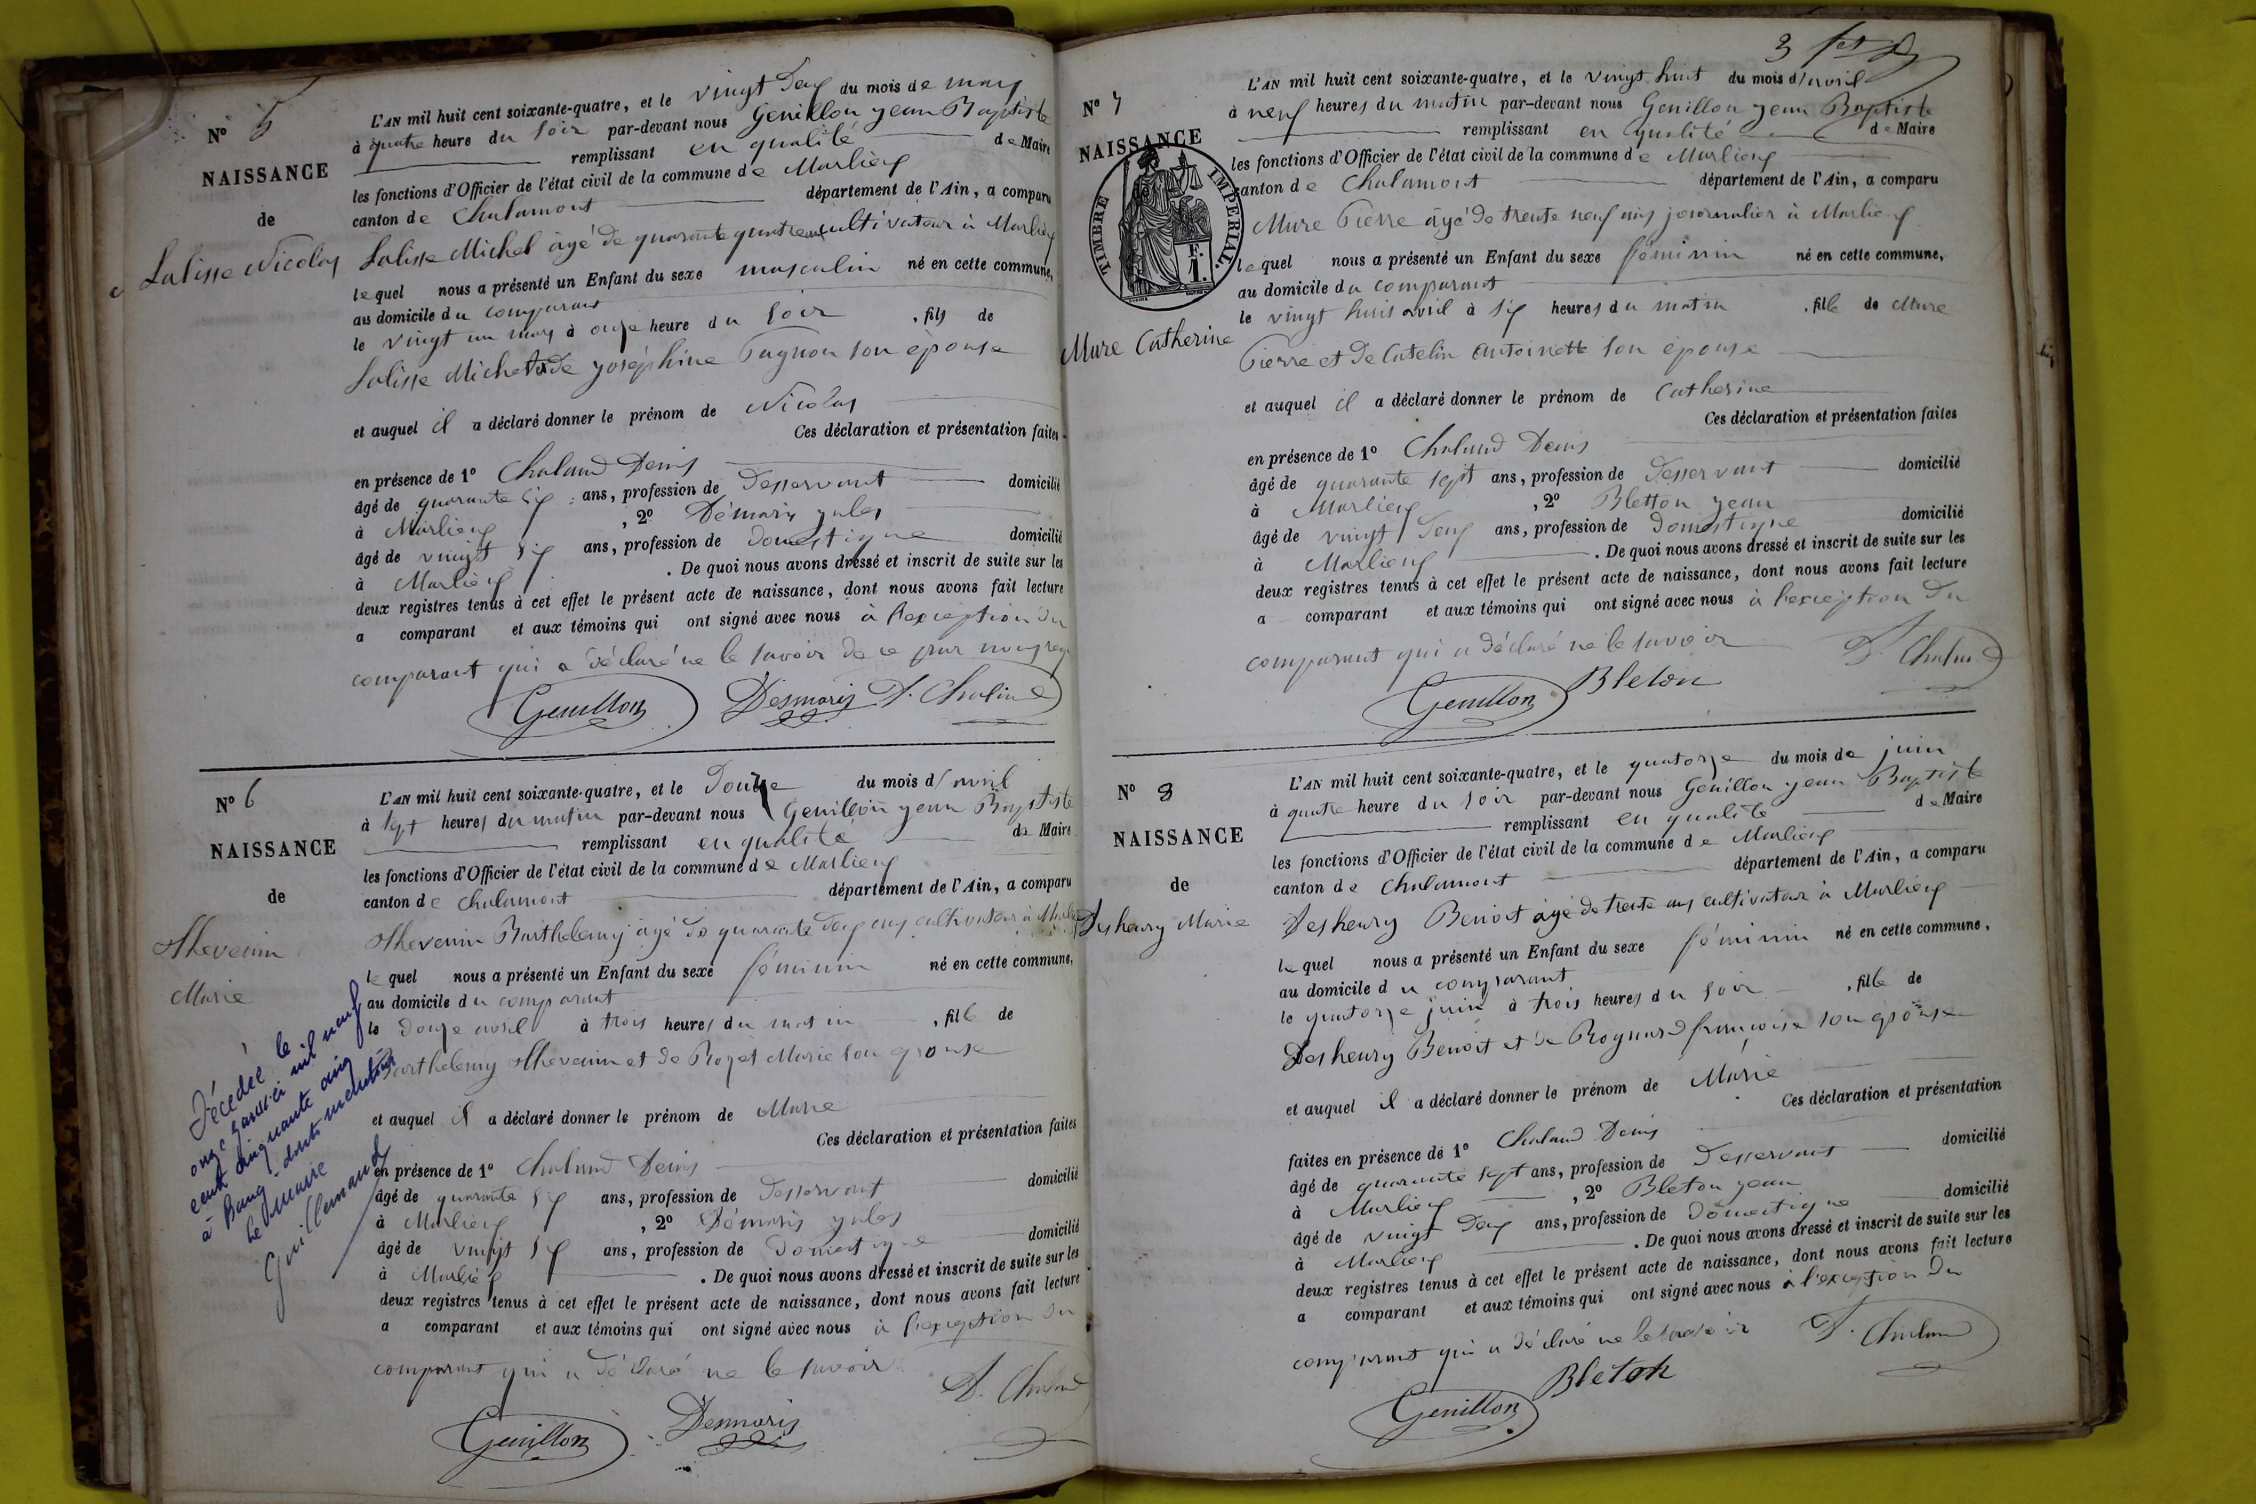 N° 5
NAISSANCE
de
Lalisse Nicolas
L'AN mil huit cent soixante-quatre, et le vingt deux du mois de mars
à quatre heure du soir par-devant nous Genillon jean Baptiste
remplissant en qualité de Maire
les fonctions d'Officier de l'état civil de la commune de Marlieux
canton de Chalamont département de l'Ain, a comparu
Lalisse Michel âgé de quarante quatre ans cultivateur à Marlieux
lequel nous a présenté un Enfant du sexe masculin né en cette commune,
au domicile du comparant
le vingt un mars à onze heure du soir , fils de
Lalisse Michel et de joséphine Pagnon son épouse
et auquel il a déclaré donner le prénom de Nicolas
Ces déclaration et présentation faites
en présence de 1° Chaland Denis
âgé de quarante six ans, profession de Desservant domicilié
à Marlieux , 2° Démaris jules
âgé de vingt six ans, profession de domestique domicilié
à Marlieux . De quoi nous avons dressé et inscrit de suite sur les
deux registres tenus à cet effet le présent acte de naissance, dont nous avons fait lecture
a comparant et aux témoins qui ont signé avec nous à l'exception du
comparant qui a déclaré ne le savoir de ce
Genillon Desmaris D. Chaland
N° 6
NAISSANCE
de
Thevenin
Marie
Décédée le
onze janvier mil neuf
cent cinquante cinq
à Bourg
Le Maire
Guillemaud
L'AN mil huit cent soixante-quatre, et le Douze du mois d'avril
à sept heures du matin par-devant nous Genillon jean Baptiste
remplissant en qualité de Maire
les fonctions d'Officier de l'état civil de la commune de Marlieux
canton de Chalamont département de l'Ain, a comparu
Thevenin Barthelemy âgé de quarante deux ans cultivateur à Marlieux
lequel nous a présenté un Enfant du sexe féminin né en cette commune,
au domicile du comparant
le douze avril à trois heures du matin , fille de
Barthelemy Thevenin et de Rozet Marie son épouse
et auquel il a déclaré donner le prénom de Marie
Ces déclaration et présentation faites
en présence de 1° Chaland Denis
âgé de quarante six ans, profession de Desservant domicilié
à Marlieux , 2° Démaris jules
âgé de vingt six ans, profession de Domestique domicilié
à Marlieux . De quoi nous avons dressé et inscrit de suite sur les
deux registres tenus à cet effet le présent acte de naissance, dont nous avons fait lecture
a comparant et aux témoins qui ont signé avec nous à l'exception du
comparant qui a déclaré ne le savoir
D. Chaland
Genillon Desmaris
3
N° 7
NAISSANCE
TIMBRE IMPERIAL.
F.
1.
Mure Catherine
L'AN mil huit cent soixante-quatre, et le vingt huit du mois d'avril
à neuf heures du matin par-devant nous Genillon jean Baptiste
remplissant en qualité de Maire
les fonctions d'Officier de l'état civil de la commune de Marlieux
canton de Chalamont département de l'Ain, a comparu
Mure Pierre âgé de trente neuf ans journalier à Marlieux
lequel nous a présenté un Enfant du sexe féminin né en cette commune,
au domicile du comparant
le vingt huit avril à six heures du matin , fille de Mure
Pierre et de Catelin Antoinette son épouse
et auquel il a déclaré donner le prénom de Catherine
Ces déclaration et présentation faites
en présence de 1° Chaland Denis
âgé de quarante sept ans, profession de Desservant domicilié
à Marlieux , 2° Bletton jean
âgé de vingt deux ans, profession de Domestique domicilié
à Marlieux . De quoi nous avons dressé et inscrit de suite sur les
deux registres tenus à cet effet le présent acte de naissance, dont nous avons fait lecture
a comparant et aux témoins qui ont signé avec nous à l'exception du
comparant qui a déclaré ne le savoir
D. Chaland
Genillon Bleton
N° 8
NAISSANCE
de
Desheury Marie
L'AN mil huit cent soixante-quatre, et le quatorze du mois de juin
à quatre heure du soir par-devant nous Genillon jean Baptiste
remplissant en qualité de Maire
les fonctions d'Officier de l'état civil de la commune de Marlieux
canton de Chalamont département de l'Ain, a comparu
Desheury Benoit âgé de trente ans cultivateur à Marlieux
lequel nous a présenté un Enfant du sexe féminin né en cette commune,
au domicile du comparant
le quatorze juin à trois heures du soir , fille de
Desheury Benoit et de Rognard françoise son épouse
et auquel il a déclaré donner le prénom de Marie
Ces déclaration et présentation
faites en présence de 1° Chaland Denis
âgé de quarante sept ans, profession de Desservant domicilié
à Marlieux , 2° Bleton jean
âgé de vingt deux ans, profession de Domestique domicilié
à Marlieux . De quoi nous avons dressé et inscrit de suite sur les
deux registres tenus à cet effet le présent acte de naissance, dont nous avons fait lecture
a comparant et aux témoins qui ont signé avec nous à l'exception du
comparant qui a déclaré ne le savoir
D. Chaland
Genillon Bleton